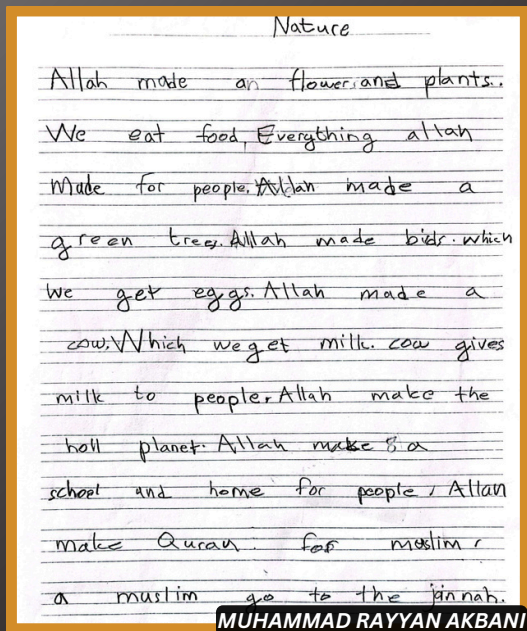 Nature
Allah made an flower, and plants..
We eat food, Everything allah
Made for people. Allah made a
green tree. Allah made bids. which
we get eggs. Allah made a
cow. Which we get milk. cow gives
milk to people. Allah make the
holl planet. Allah make a
school and home for people, Allah
make Quran for moslim,
a muslim go to the jannah.
MUHAMMAD RAYYAN AKBANI